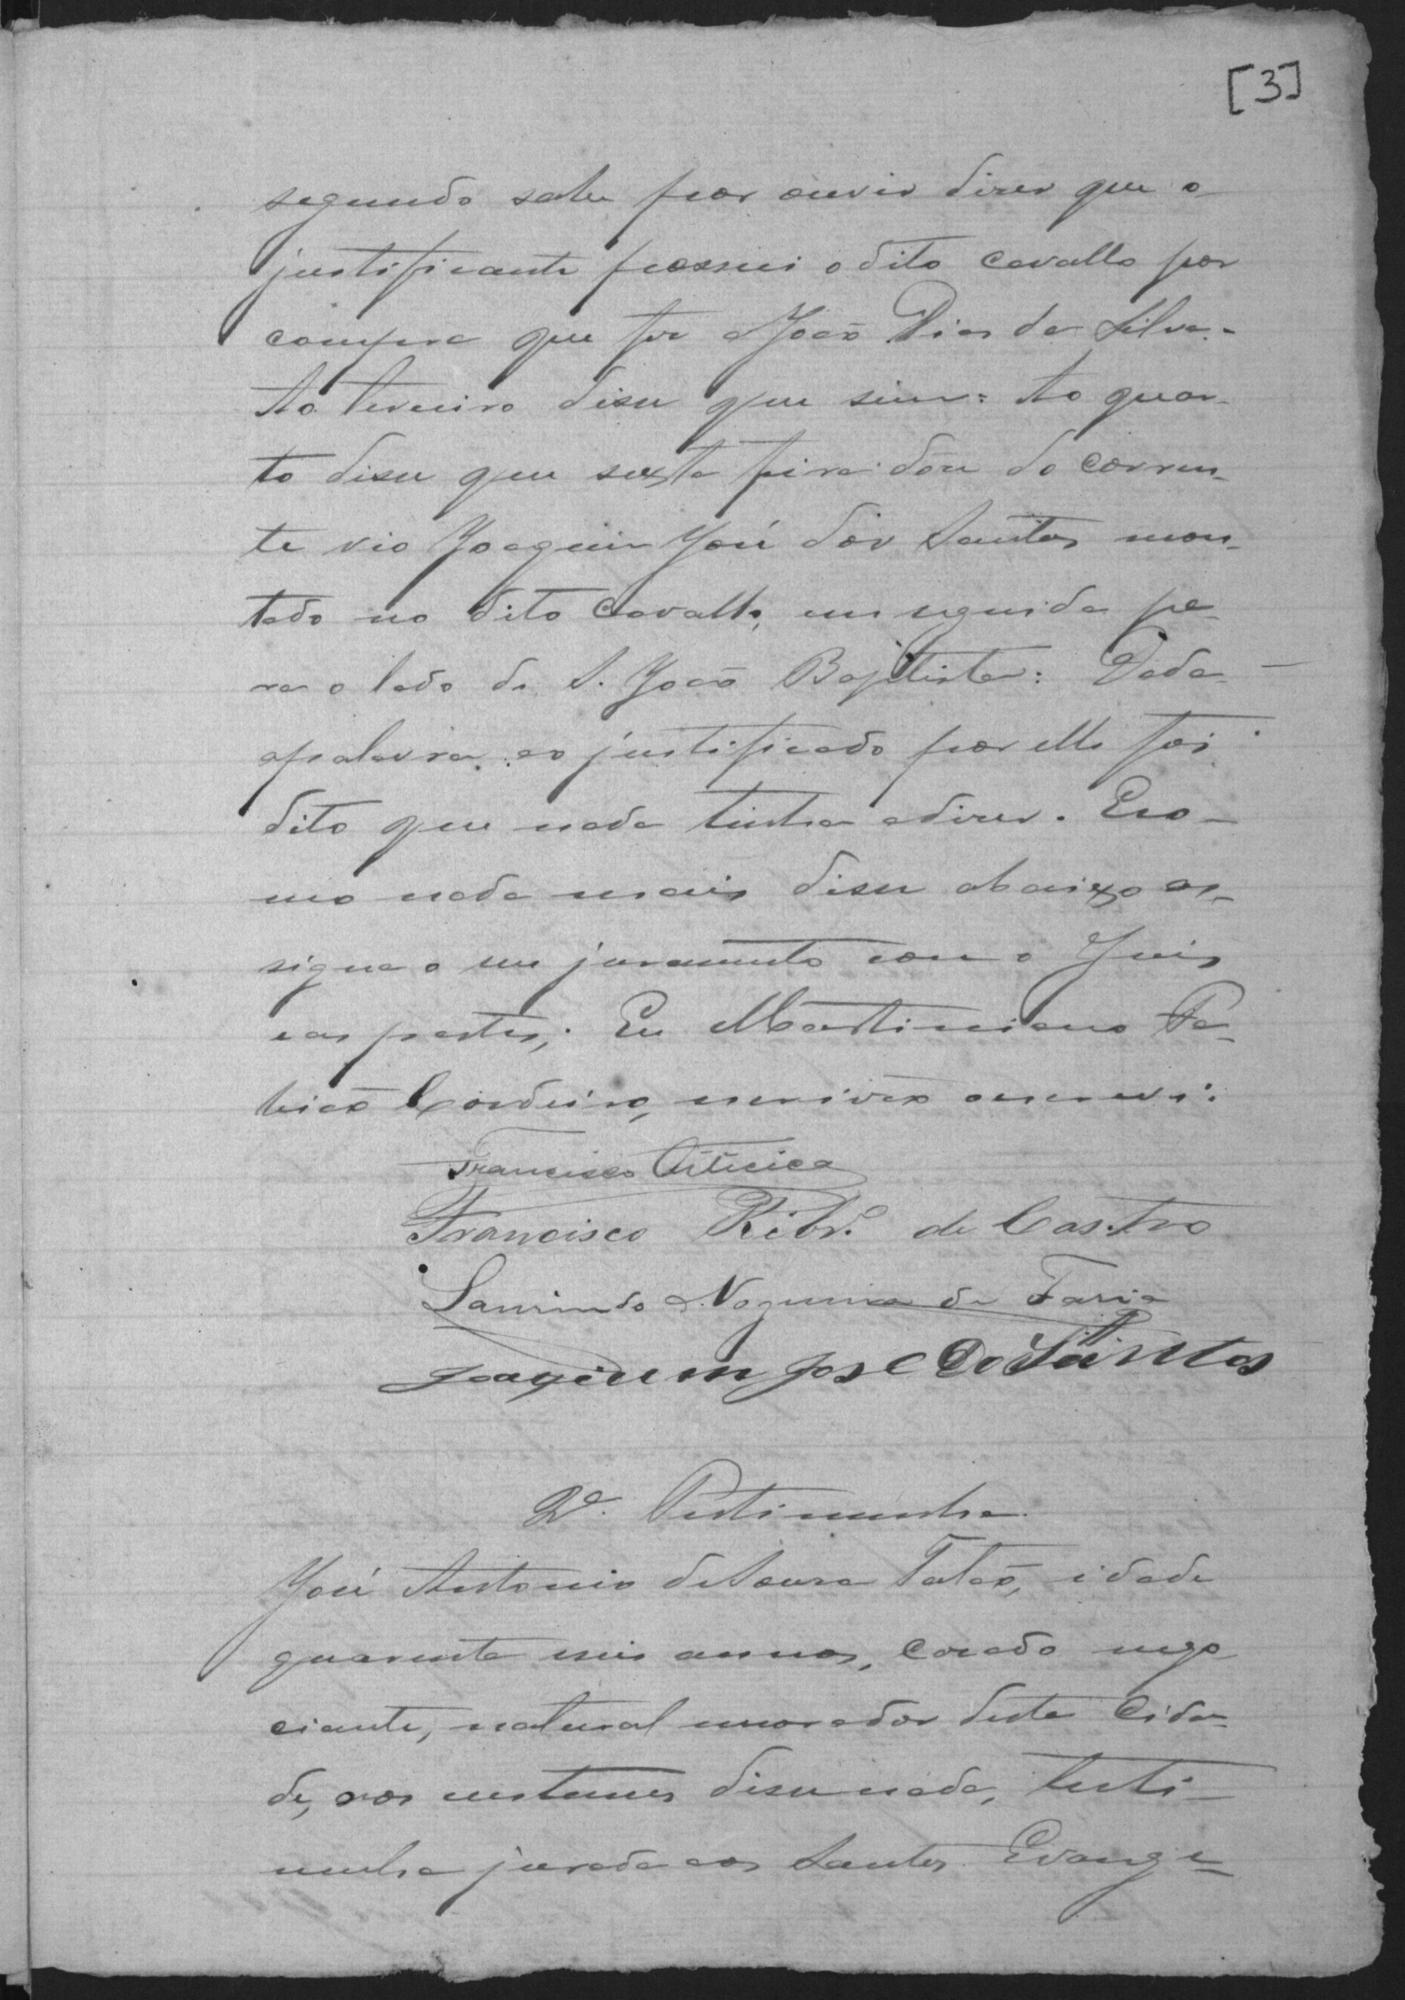 [3]
segundo sabe por ouvir dizer que o
justificante possui o dito cavallo por
compra que fez a João Dias da Silva.-
Ao terceiro disse que sim: Ao quar-
to disse que sexta feira doze do corren-
te vio Joaquim José dos Santos mon-
tado no dito cavallo, em seguida pa-
ra o lado de S. João Baptista: Dada
apalavra ao justificado por elle foi
dito que nada tinha adizer. Eco-
mo nada mais disse abaixo as-
signa o seu juramento com o Juiz
eas partes; Eu Martiniano Pa-
tricio Cordeiro, escrivão oescrevi:
Francisco Oiticica
Francisco Ribr.o de Castro
Laurindo Nogueira de Faria
Joaquim jose Do Santos
2ª. Testimunha
José Antonio de Souza Falcão, idade
quarenta seis annos, casado nego
ciante, natural morador desta Cida-
de, aos costumes disse nada, testi-
munha jurada aos Santos Evange-